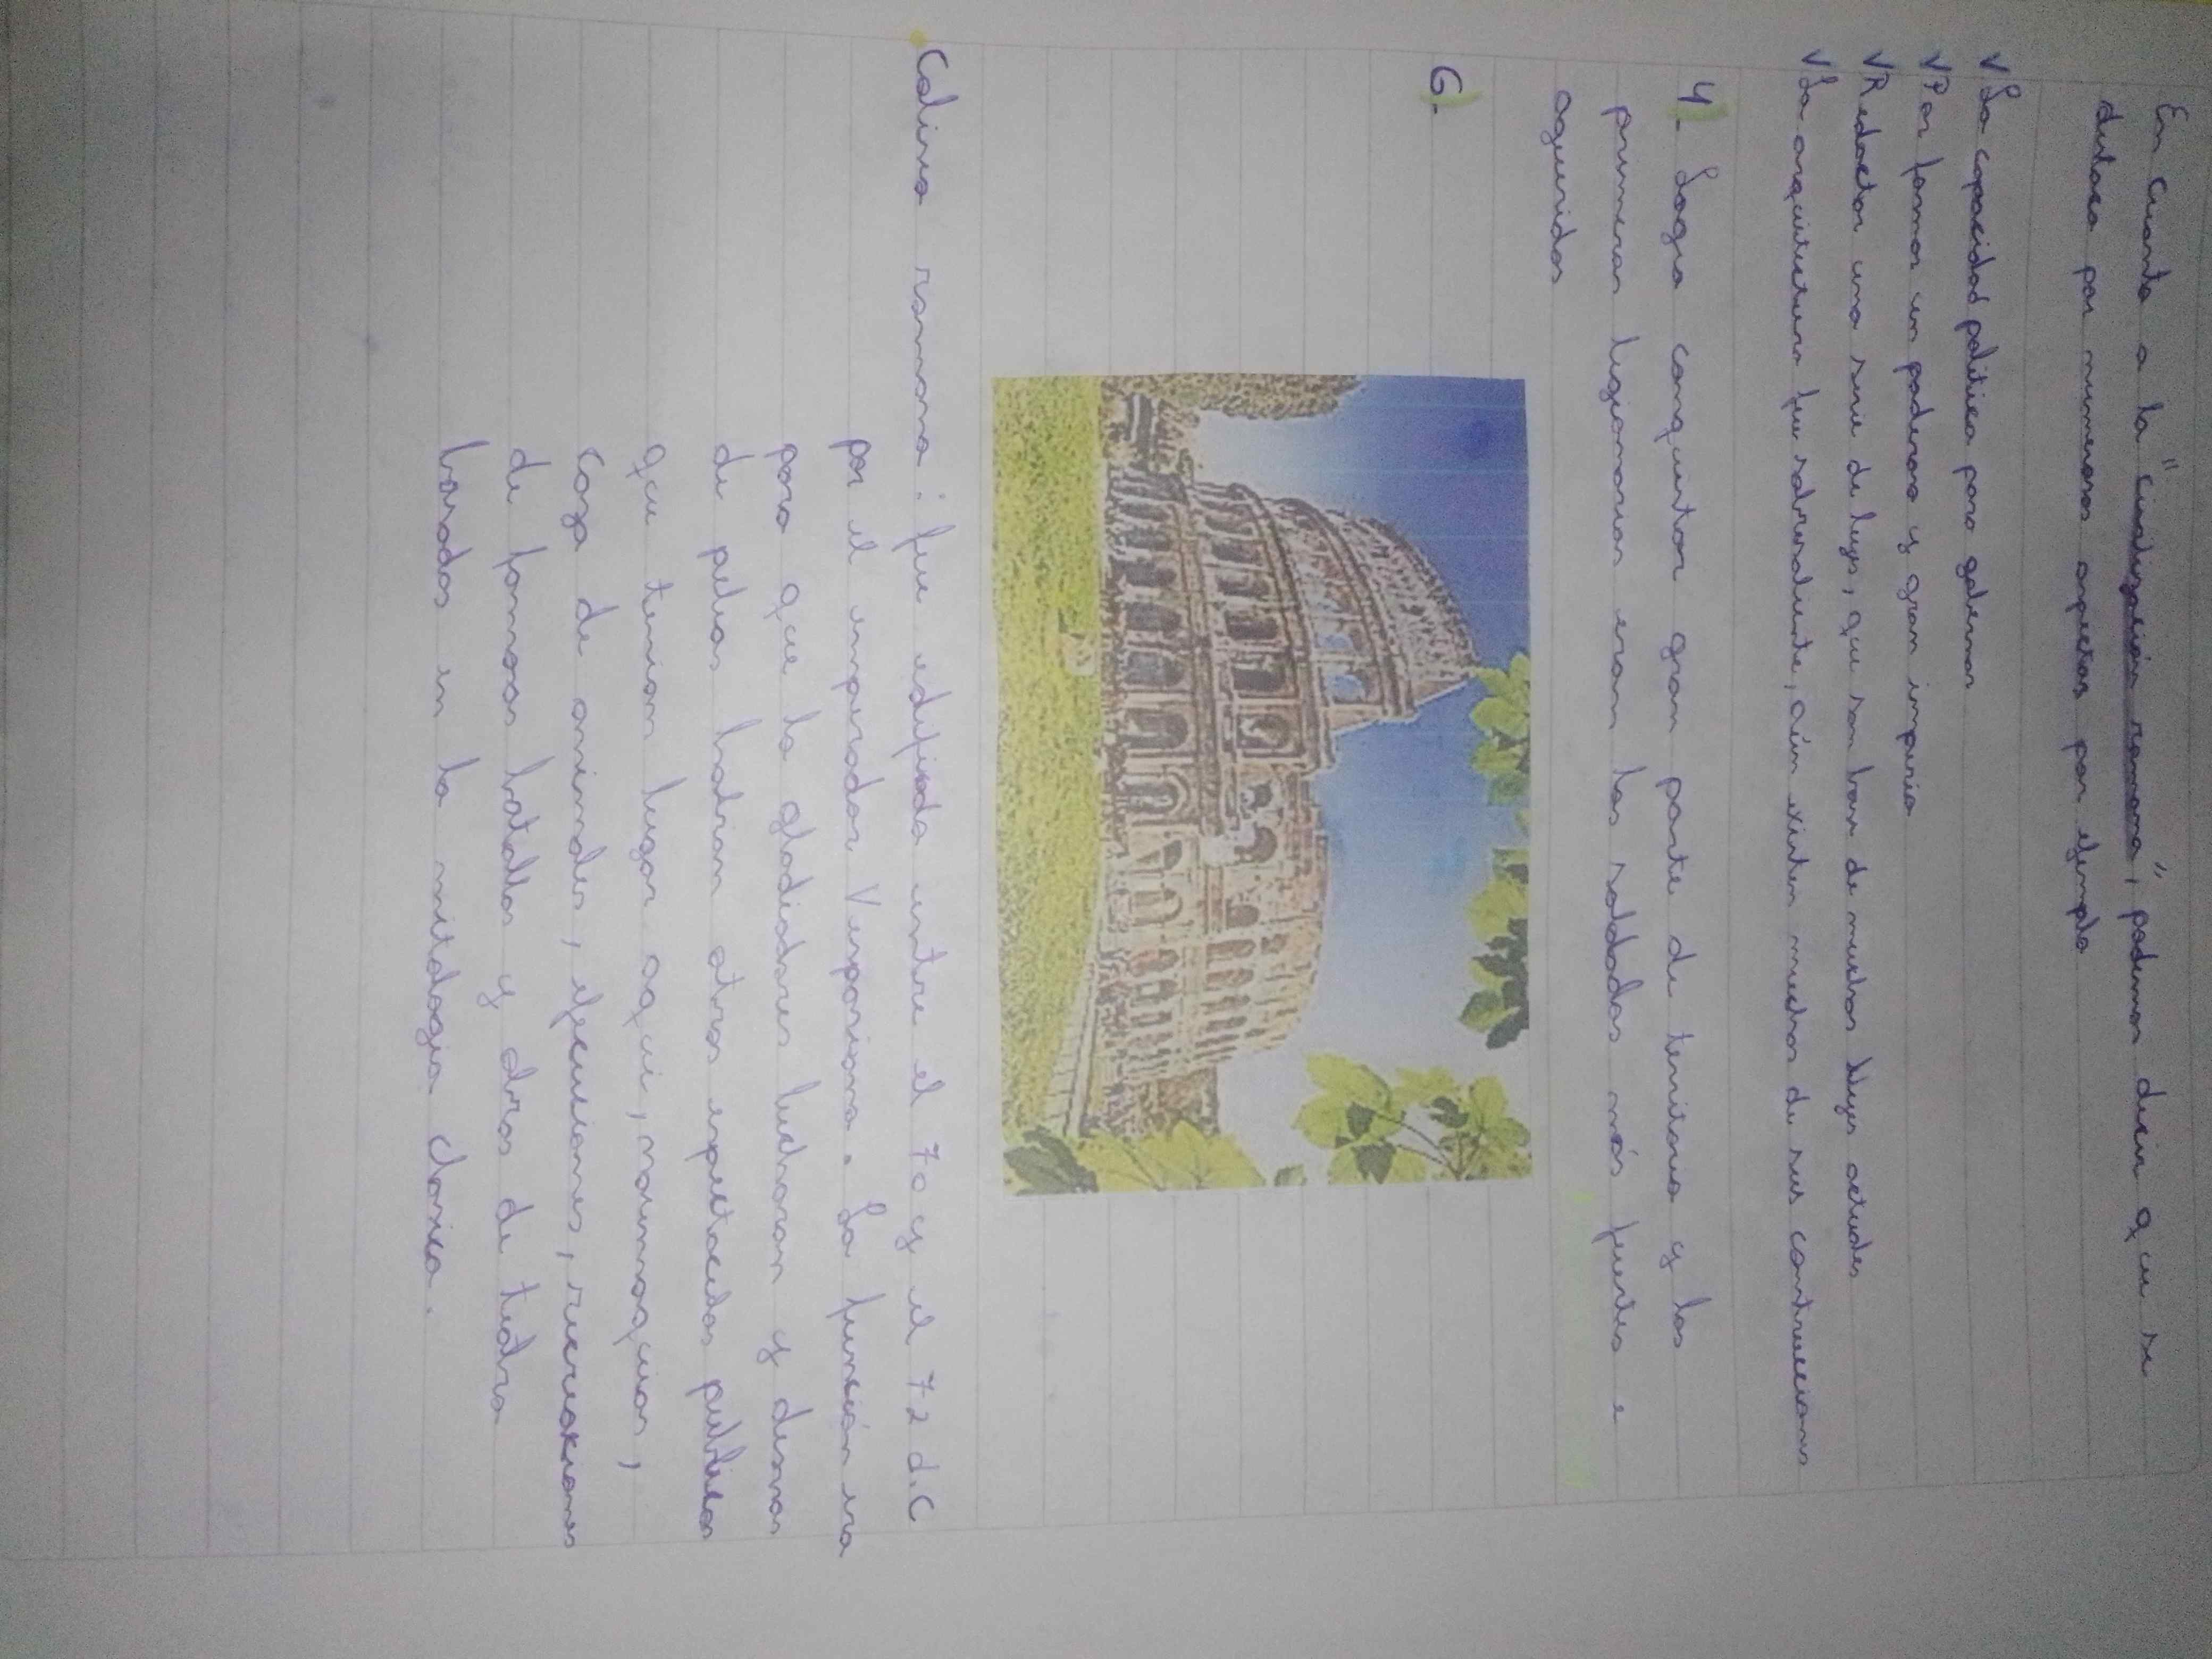 En cuanto a la "civilización romana", podemos decir que se
destaca por numerosos aspectos por ejemplo
√ La capacidad politica para gobernar
√ Por formar un poderoso y gran imperio
√ Redactar una serie de leyes, que son base de muchas leyes actuales
√ La arquitectura fue sobresaliente, aún existen muchas de sus contrucciones
4- Logra conquistar gran parte de territorio y los
primeras legionarias eran los soldados más fuertes e
aguerridos
6-
Coliseo romano: fue edificado entre el 70 y el 72 d.C
por el emperador Vespasiano. La función era
para que los gladiadores lucharan y demas
de peleas habrian otros espectaculos publicos
que tenian lugar aqui, naumaquias,
caza de animales, ejecuciones, recreaciones
de famosas batallas y obras de teatro
basados en la mitologia clasica.